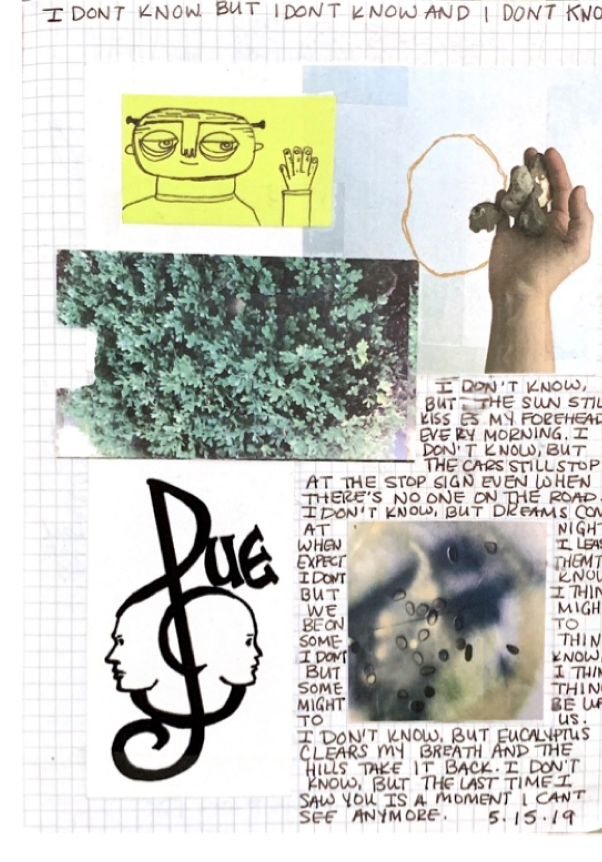 I DONT KNOW BUT I DONT KNOW AND I DONT KNO
I DON'T KNOW,
BUT THE SUN STIL
KISSES MY FOREHEAD
EVERY MORNING. I
DON'T KNOW, BUT
THE CARS STILL STOP
AT THE STOP SIGN EVEN WHEN
THERE'S NO ONE ON THE ROAD.
I DON'T KNOW, BUT DREAMS COM
AT NIGHT
WHEN I LEAS
EXPECT THEM
I DONT KNOW
BUT I THIN
WE MIGH
BE ON TO
SOME THIN
I DONT KNOW
BUT I THIN
SOME THIN
MIGHT BE UP
TO US.
I DON'T KNOW, BUT EUCALYPTUS
CLEARS MY BREATH AND THE
HILLS TAKE IT BACK. I DON'T
KNOW, BUT THE LAST TIME I
SAW YOU IS A MOMENT I CAN'T
SEE ANYMORE. 5.15.19
Pue